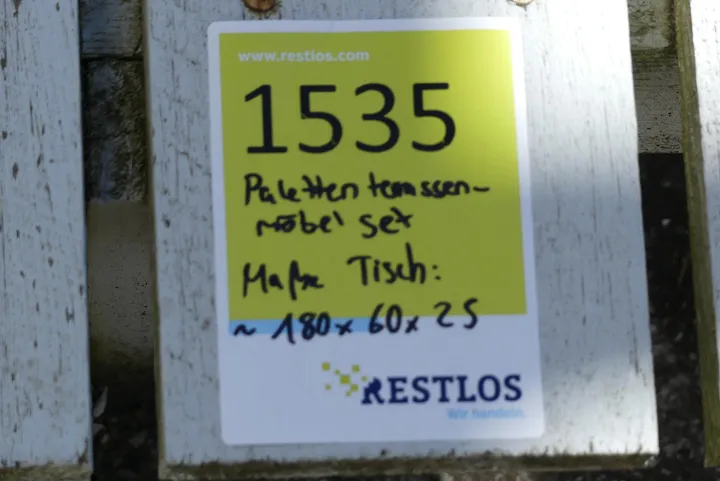 www.restlos.com
1535
Paletten terrassen-
möbel set
Maße Tisch:
~ 180x 60x 25
RESTLOS
Wir handeln.